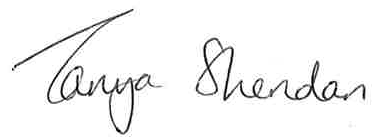 Tanya Shendan